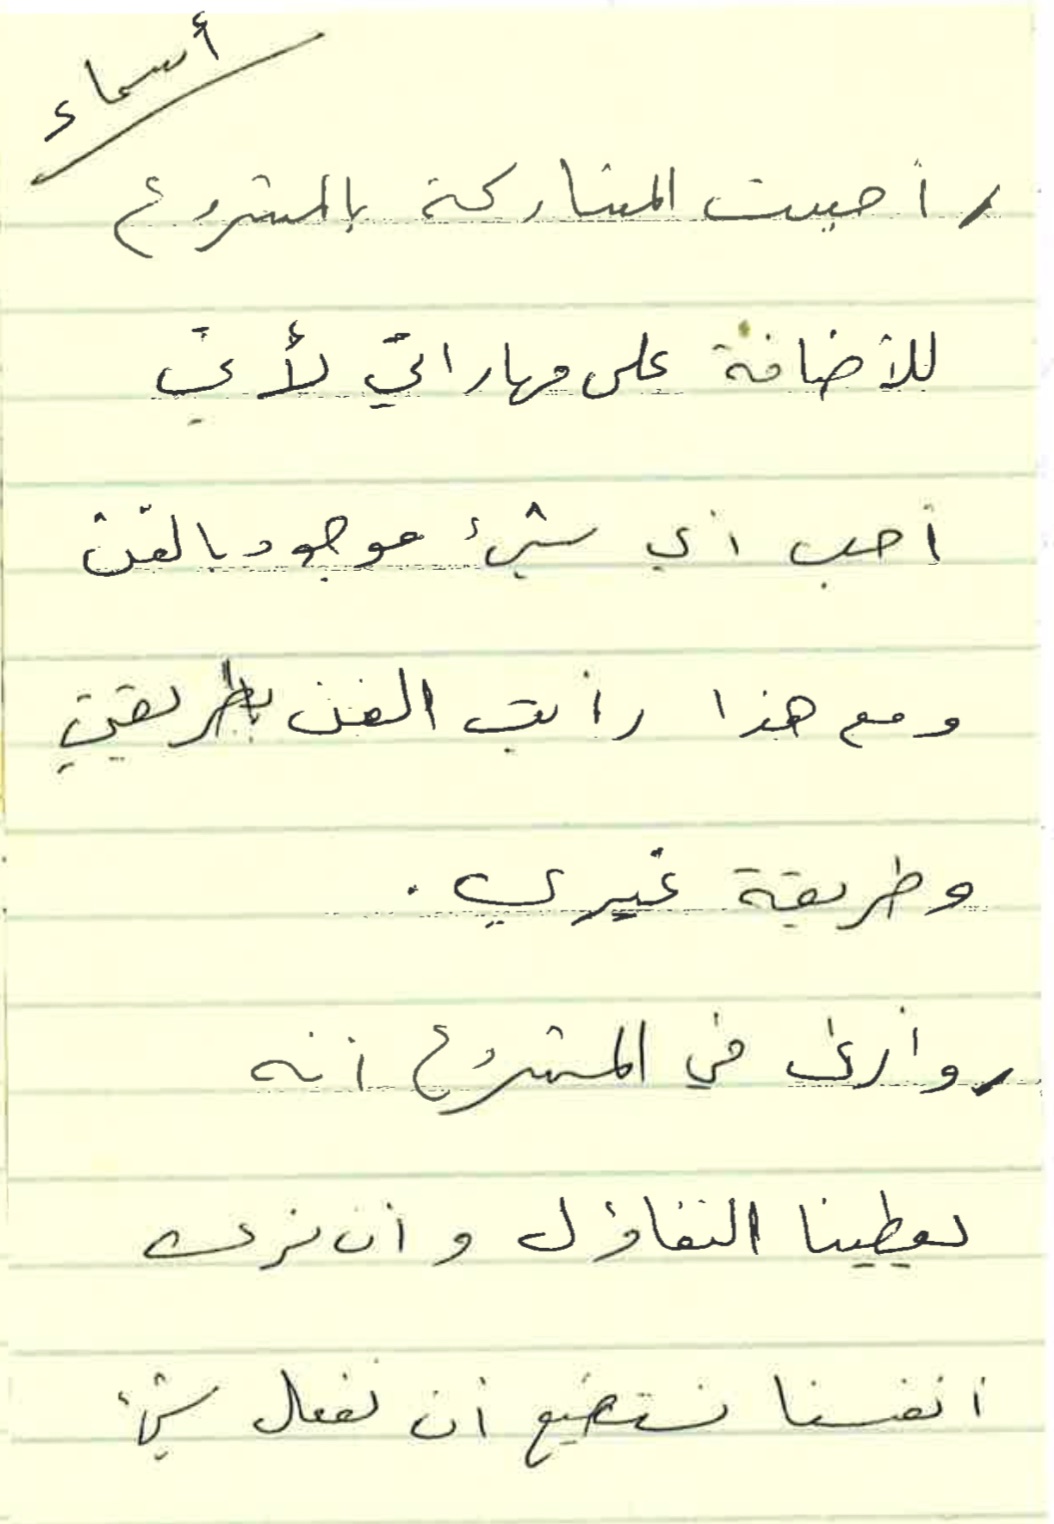 أسماء
/ أحببت المشاركة بالمشروع
للأضافة على مهاراتي لأني
أحب أي شيئ موجود بالفن
ومع هذا رأيت الفن بطريقتي
وطريقة غيري .
/ وأرى في المشروع أنه
يعطينا التفاؤل و أن نرى
أنفسنا نستطيع أن نفعل شيئ